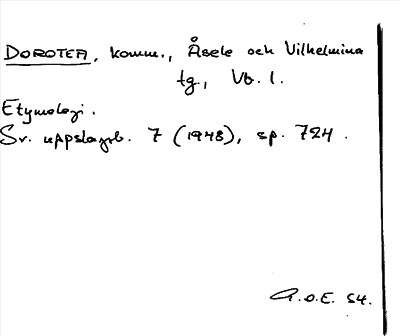 DOROTEA, komm., Åsele och Vilhelmina
tg., Vb. l.
Etymologi.
Sv. uppslagsb. 7 (1948), sp. 724.
R.O.E. 54.